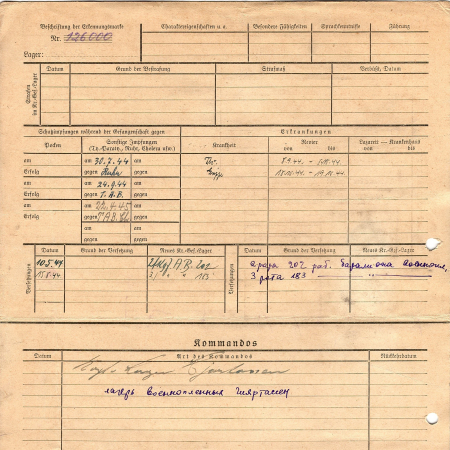 Beschriftung der Erkennungsmarke
Nr. 126000
Lager:
Charaktereigenschaften u.a.
Besondere Fähigkeiten
Sprachkenntnisse
Führung
Strafen im Kr.-Gef.-Lager
Datum
Grund der Bestrafung
Strafmaß
Verbüßt, Datum
Schutzimpfungen während der Gefangenschaft gegen
Erkrankungen
Pocken
Sonstige Impfungen
(Ty.-Paraty., Ruhr, Cholera usw.)
Krankheit
Revier
von bis
Lazarett - Krankenhaus
von bis
am am 30.7.44 am
Erfolg gegen Ruhr gegen
am am 24.9.44 am
Erfolg gegen T.A.B. gegen
am am 22.4.45 am
Erfolg gegen TAB.Ch. gegen
am am am
Erfolg gegen gegen
Grippe 18.11.44. - 19.11.44.
Versetzungen
Datum
Grund der Versetzung
Neues Kr.-Gef.-Lager
Datum
Grund der Versetzung
Neues Kr.-Gef.-Lager
10.5.44
A.R. 202
3/ " " 183
202 раб. баталиона
3 рота 183
Kommandos
Datum
Art des Kommandos
Rückkehrdatum
лагерь военнопленных